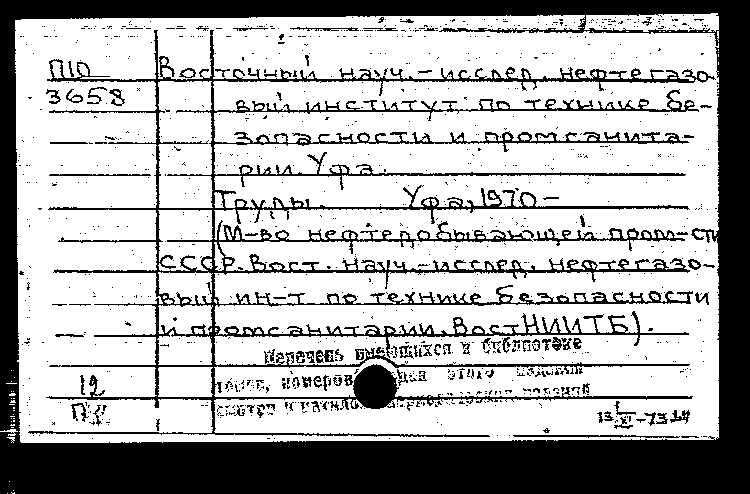 П10 Восточный науч.-исслед. нефтегазо
3658 вый институт по технике бе-
зопасности и промсанита-
рии. Уфа.
Труды. Уфа, 1970 -
(М-во нефтедобывающей пром-сти
СССР. Вост. науч.-исслед. нефтегазо-
вый ин-т по технике безопасности
и промсанитарии. ВостНИИТБ).
Перечень имеющихся в библиотеке
томов, номеров этого издания
12 смотри в каталоге периодических изданий
13 XI-73